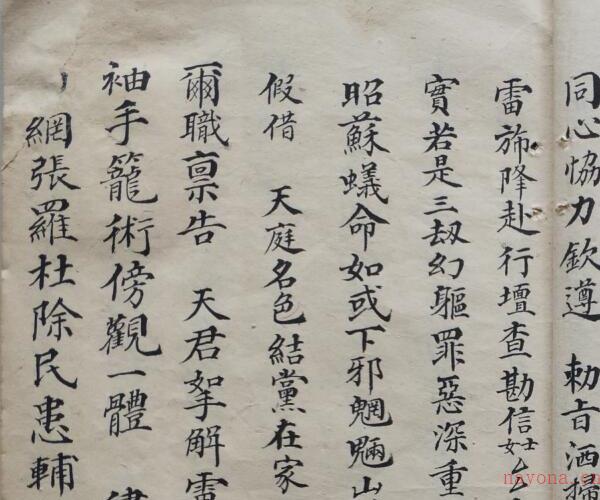 同心恊力欽遵 勅旨洒掃
雷斾降赴行壇查勘信士女厶
實若是三刼幻軀罪惡深重
昭蘇蟻命如或下邪魍魎山
假借 天庭名色結黨在家
爾職禀告 天君拏解雷
袖手籠術傍觀一體
網張羅杜除民患輔
nayona.cn